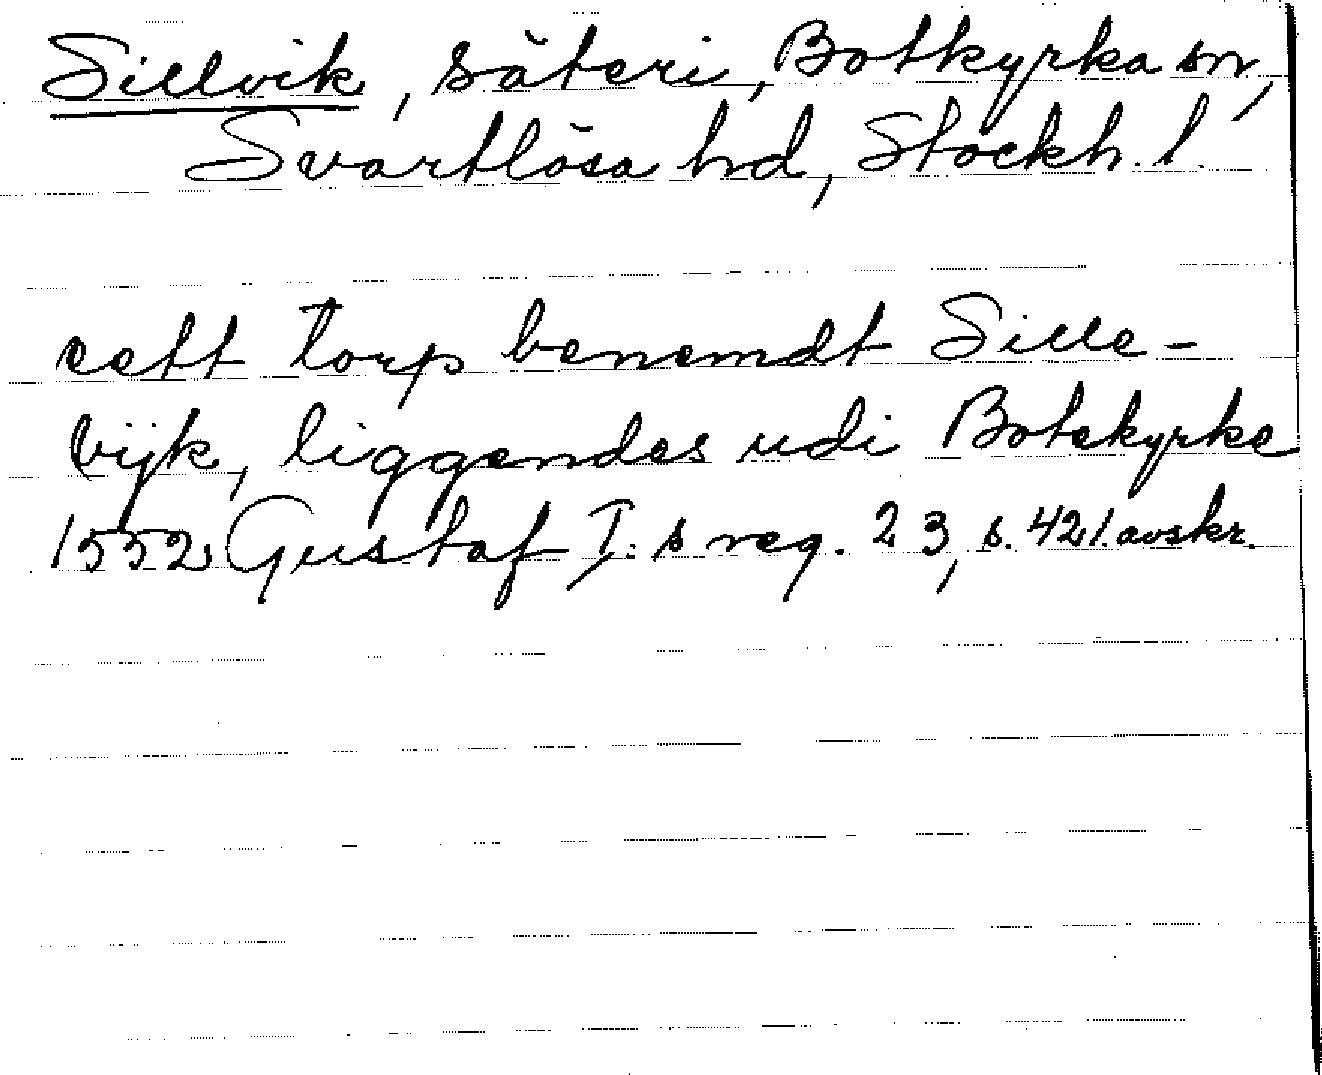 Sillvik, säteri, Botkyrka sn,
Svartlösa hd, Stockh. l.
eett torp benemdt Sille-
vijk, liggendes udi Botekyrke
1552 Gustaf I:s reg. 23, s. 421. avskr.